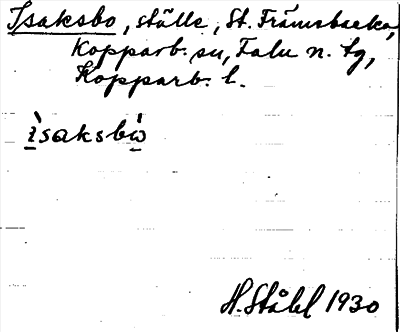 Isaksbo, ställe, St. Främsbacka,
Kopparb. sn, Falu n. tg,
Kopparb. l.
ìsaksbò
H. Ståhl 1930